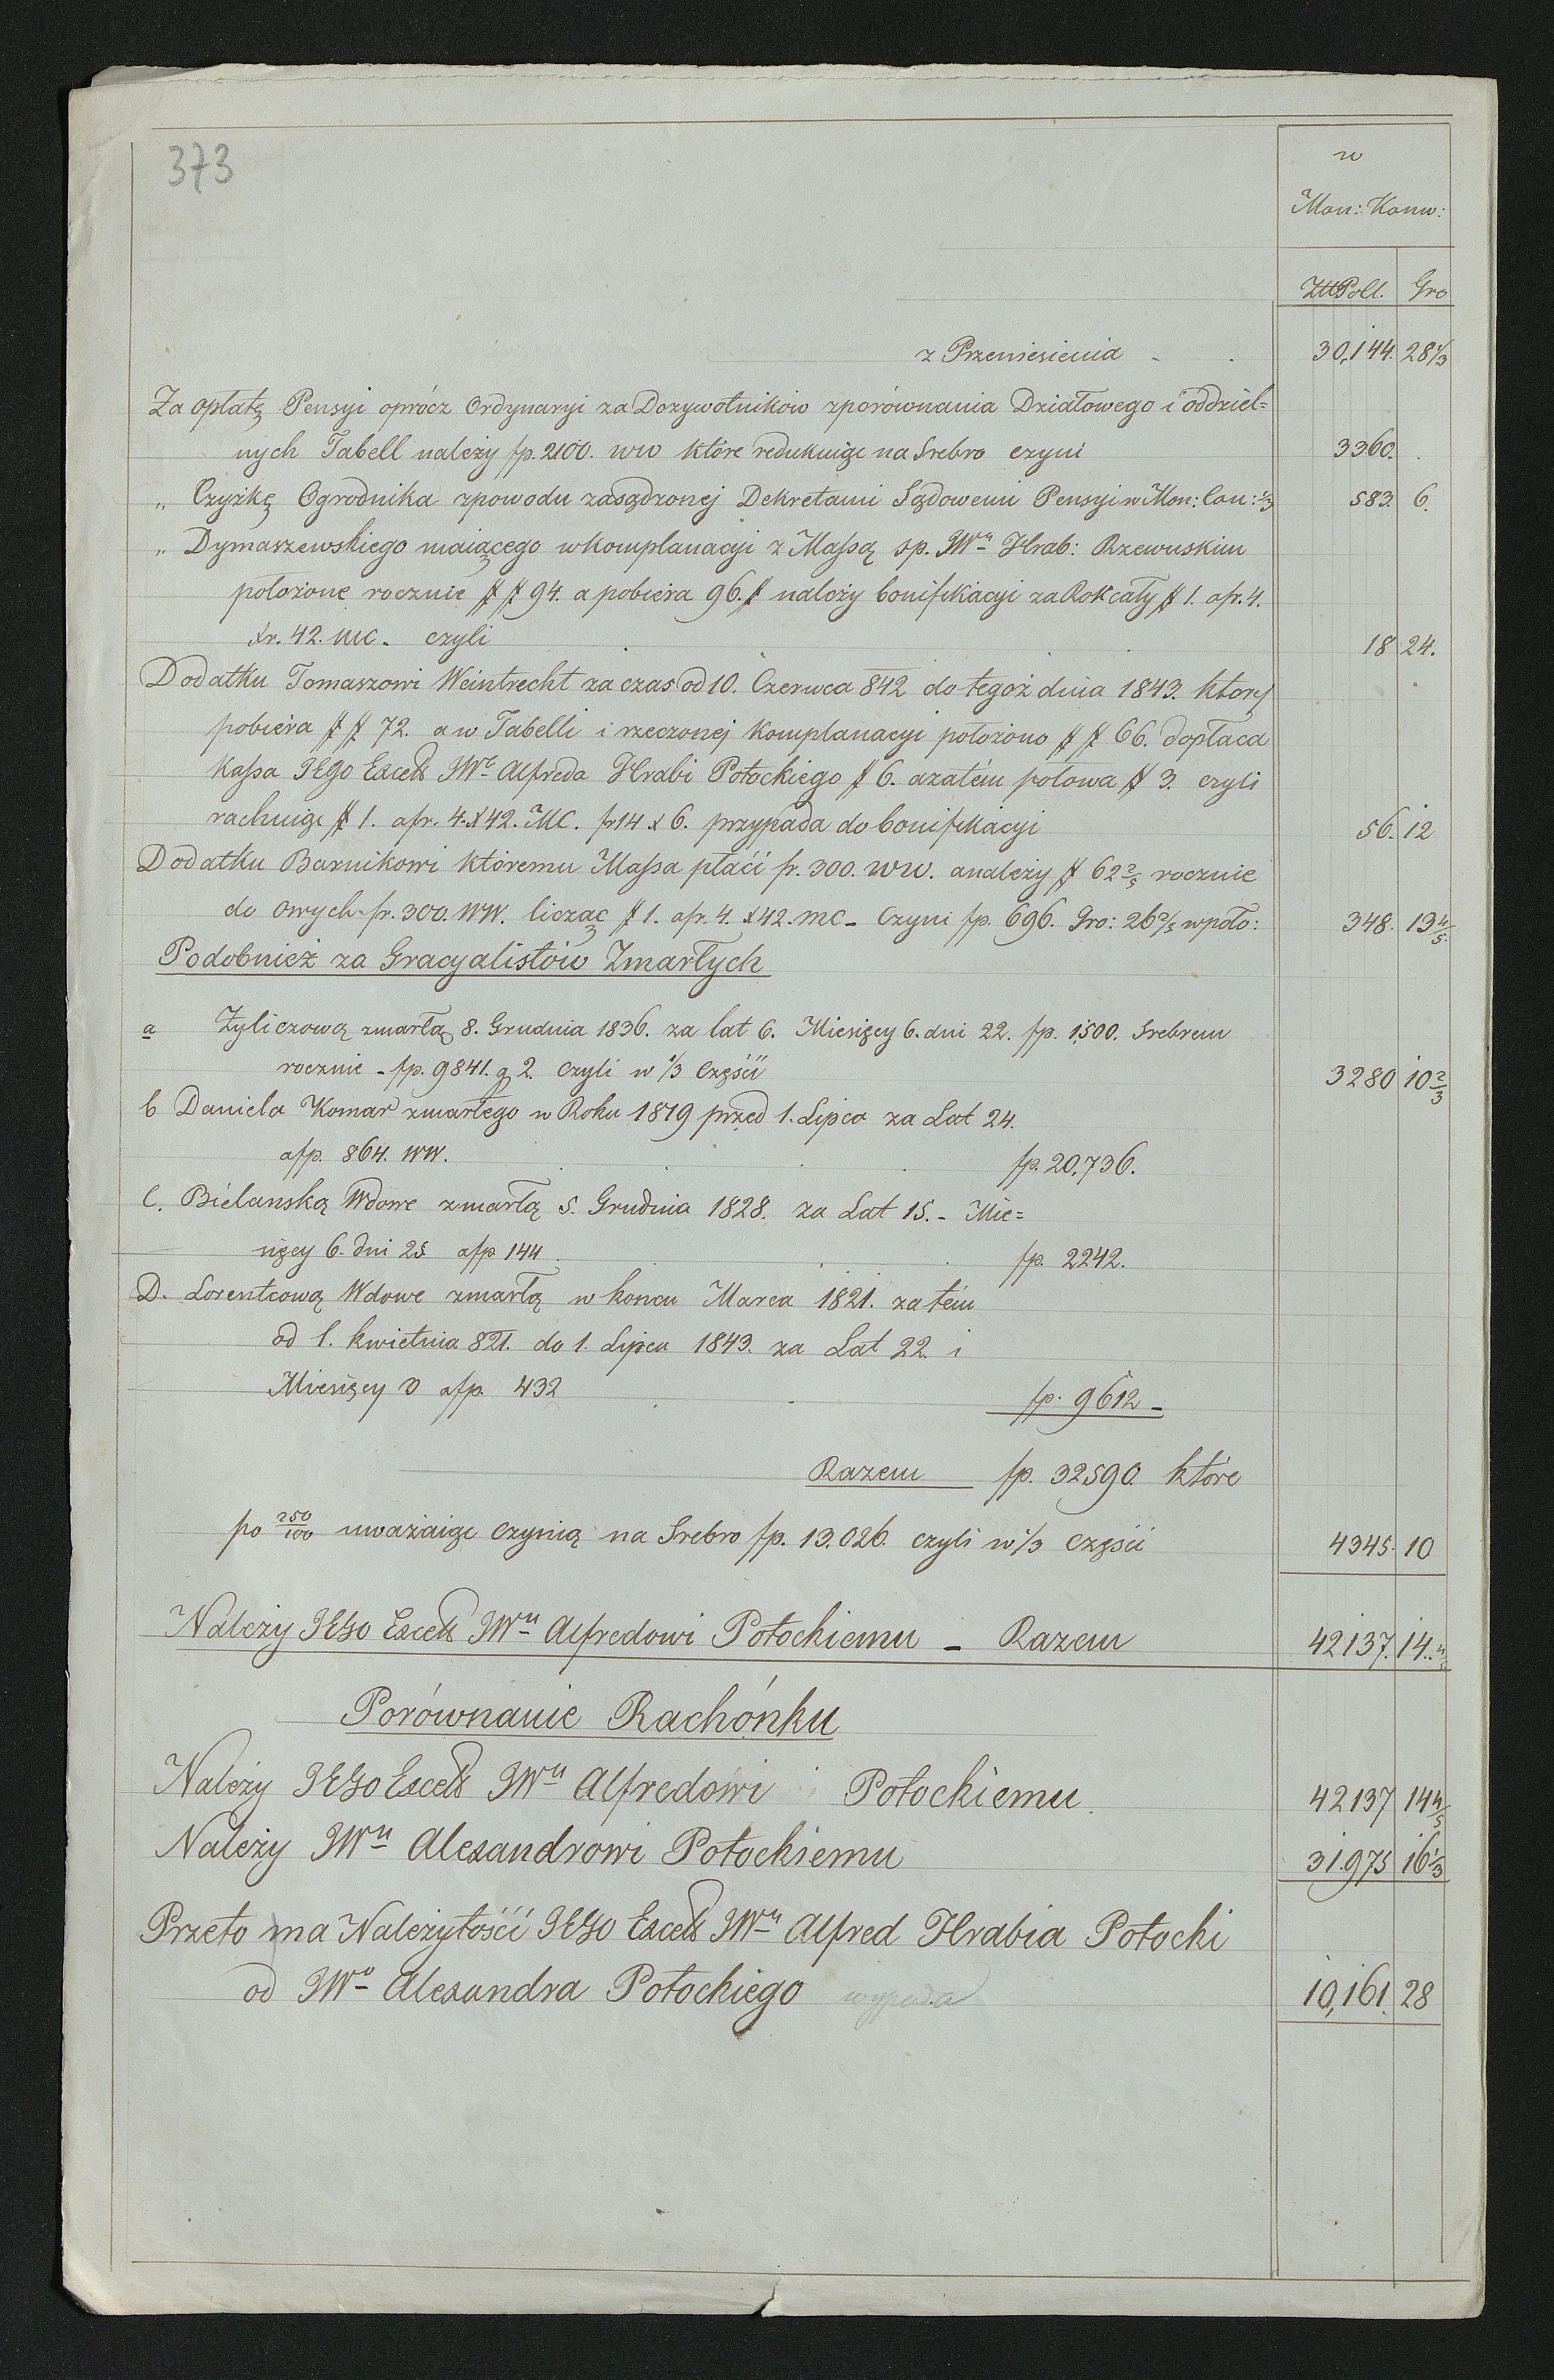 373
w
Mon: Konw:
ZłłPoll. Gro
z Przeniesienia - . 30,144. 28 1/3
Za opłatę Pensyi oprócz Ordynaryi za Dozywotników zporównania Działowego i oddziel=
nych Tabell należy fp. 2100. WW które redukuiąc na Srebro czyni 3360. .
„ Czyżkę Ogrodnika zpowodu zasądzonej Dekretami Sądowemi Pensyi w Mon: Con: 1/3 583. 6.
„ Dymaszewskiego maiącego wkomplanacyi z Massą sp. JWu Hrab: Rzewuskim
położone rocznie # # 94. a pobiéra 96. # należy bonifikacyi za Rok cały # 1. afr. 4.
xr. 42. MC. czyli 18 24.
Dodatku Tomaszowi Weintrecht za czas od 10. Czerwca 842 do tegoż dnia 1843. ktory
pobiéra # # 72. a w Tabelli i rzeczonej Komplanacyi położono # # 66. dopłaca
Kassa JEgo Excell JWo Alfreda Hrabi Potockiego # 6. azatém połowa # 3. czyli
rachuiąc # 1. afr. 4. x 42. MC. fr 14 x 6. przypada do bonifikacyi 56. 12
Dodatku Barnikowi któremu Massa płaći fr. 300. WW. anależy # 62 2/5 rocznie
do owych fr. 300. WW. licząc # 1. afr. 4. x 42. MC - Czyni fp. 696. Gro: 26 2/5 wpoło: 348. 13 4/5.
Podobnież za Gracyalistów Zmarłych
a Żyliczową zmarłą 8. Grudnia 1836. za lat 6. Miesięcy 6. dni 22. fp. 1,500. Srebrem
rocznie - fp. 9841. g 2. czyli w 1/3 Częśći 3280 10 2/3
b Daniela Komar zmarłego w Roku 1819 przed 1. Lipca za Lat 24.
afp. 864. WW. fp. 20,736.
C. Bielanską Wdowe zmarłą 5. Grudnia 1828. za Lat 15. - Mie=
sięcy 6. dni 25 afp 144 . fp. 2242.
D. Lorentcową Wdowe zmarłą w koncu Marca 1821. zatém
od 1. kwietnia 821. do 1. Lipca 1843. za Lat 22. i
Miesięcy 3 afp. 432 fp. 9612 -
Razem fp. 32590. które
po 250/100 uważaiąc czynią na Srebro fp. 13.026. czyli w 1/3 części 4345. 10
Należy JEgo Excell JWu Alfredowi Potockiemu - Razem 42137. 14. 4/5
Porównanie Rachónku
Należy JEgo Excell JWu Alfredowi Potockiemu 42137 14 4/5
Należy JWu Alexandrowi Potockiemu 31.975 16 1/3
Przeto ma Należytośći JEgo Excell JWu Alfred Hrabia Potocki
od JWo Alexandra Potockiego wypada 10,161. 28